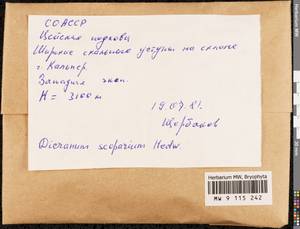 СОАССР
Цейская подкова
Широкие скального уступы на склоне
г. Кальпер.
Западная эксп.
H = 3100 м
19.07.81.
Щербаков
Dicranum scoparium Hedw.
Herbarium MW, Bryophyta
MW 9 115 242